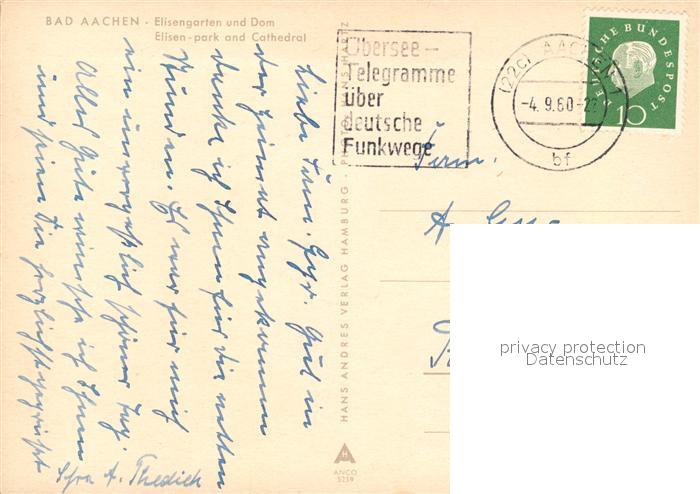 BAD AACHEN - Elisengarten und Dom
Elisen-park and Cathedral
Übersee-
Telegramme
über
deutsche
Funkwege
(22c) AACHEN 1
-4.9.60-22
bf
DEUTSCHE BUNDESPOST
10
Gut in
der Heimat angekommen
danke ich Ihnen für die netten
Stunden. Es war für mich
ein unvergeßlich schöner Tag.
Alles Gute wünsche ich Ihnen
und seien Sie herzlichst gegrüßt
Ihre A. Thedieck
Fam.
HANS ANDRES VERLAG HAMBURG - PHOTO: HANS HARTZ
ANCO
5259
privacy protection
Datenschutz